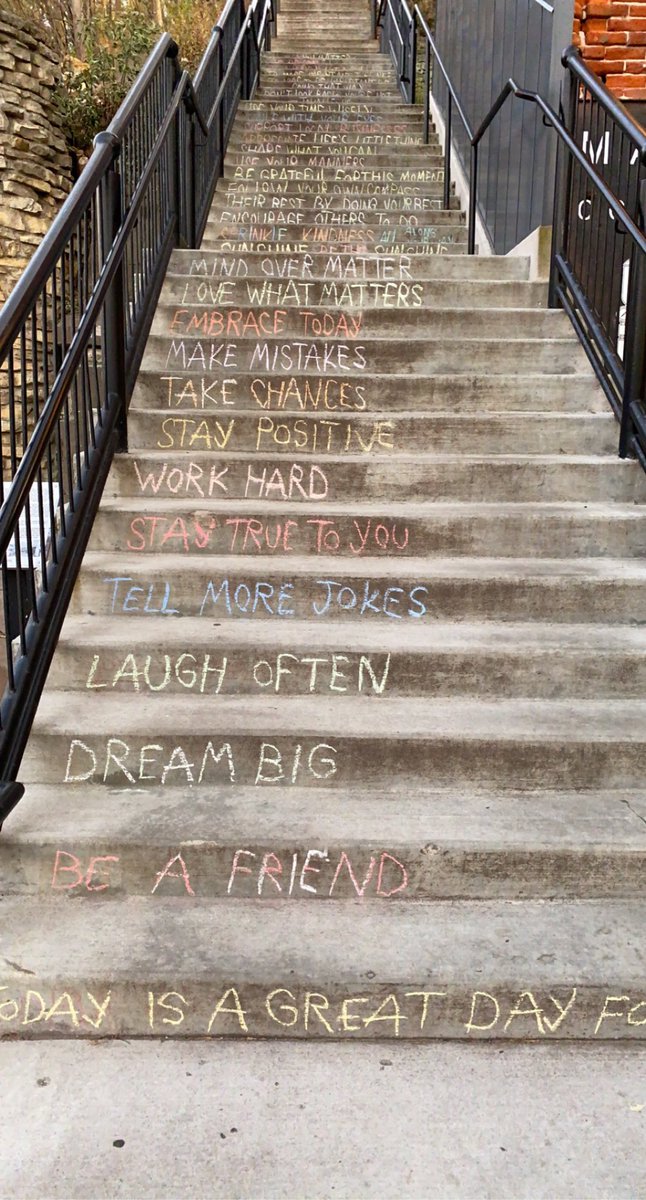 WITH YOUR EYES
SUPPORT LOCAL BUSINESSES
APPRECIATE LIFE'S LITTLE THINGS
SHARE WHAT YOU CAN
USE YOUR MANNERS
BE GRATEFUL FOR THIS MOMENT
FOLLOW YOUR OWN COMPASS
THEIR BEST BY DOING YOUR BEST
ENCOURAGE OTHERS TO DO
SPRINKLE KINDNESS ALL ALONG
SUNSHINE BE THE SUNSHINE
MIND OVER MATTER
LOVE WHAT MATTERS
EMBRACE TODAY
MAKE MISTAKES
TAKE CHANCES
STAY POSITIVE
WORK HARD
STAY TRUE TO YOU
TELL MORE JOKES
LAUGH OFTEN
DREAM BIG
BE A FRIEND
TODAY IS A GREAT DAY FO